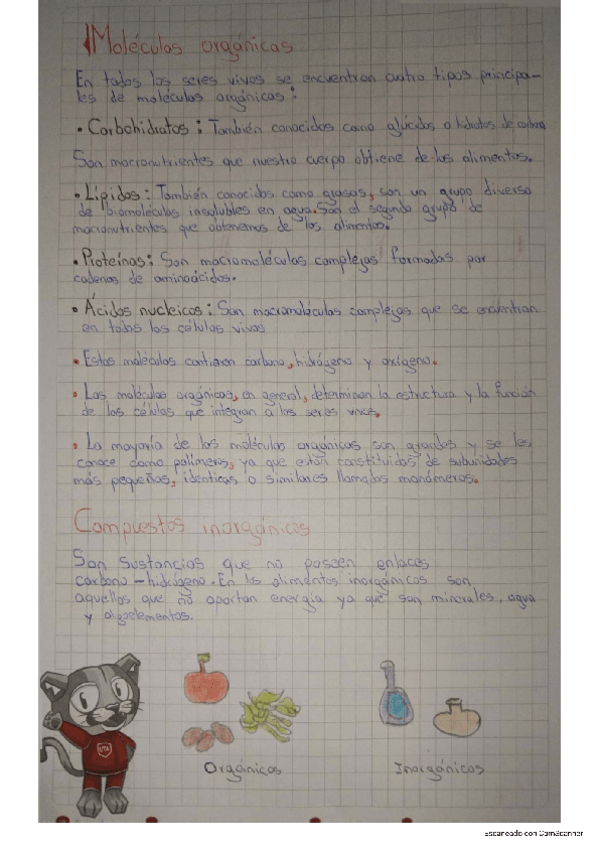 Moléculas orgánicas
En todos los seres vivos se encuentran cuatro tipos principa-
les de moléculas orgánicas:
• Carbohidratos: También conocidos como glúcidos o hidratos de carbono
Son macronutrientes que nuestro cuerpo obtiene de los alimentos.
• Lípidos: También conocidos como grasas, son un grupo diverso
de biomoléculas insolubles en agua. Son el segundo grupo de
macronutrientes que obtenemos de los alimentos.
• Proteínas: Son macromoléculas complejas formadas por
cadenas de aminoácidos.
• Ácidos nucleicos: Son macromoléculas complejas que se encuentran
en todas las células vivas
• Estas moléculas contienen carbono, hidrógeno y oxígeno.
• Las moléculas orgánicas, en general, determinan la estructura y la función
de las células que integran a los seres vivos.
• La mayoría de las moléculas orgánicas son grandes y se les
conoce como polímeros, ya que están constituidos de subunidades
más pequeñas, identicas o similares llamados monómeros.
Compuestos inorgánicos
Son sustancias que no poseen enlaces
carbono-hidrógeno. En los alimentos inorgánicos son
aquellos que no aportan energía ya que son minerales, agua
y oligoelementos.
UTA
Orgánicos
Inorgánicos
Escaneado con CamScanner